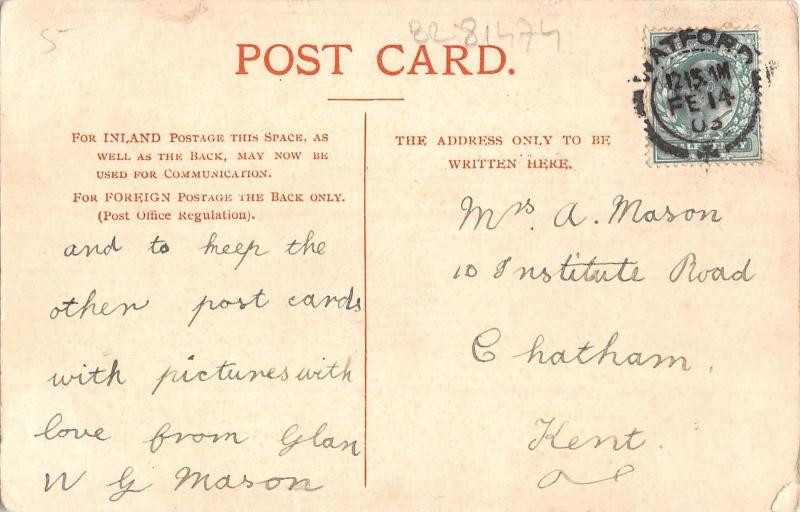 5-
BR 81474
POST CARD.
WATFORD
12.15 AM
FE 14
03
FOR INLAND POSTAGE THIS SPACE, AS
WELL AS THE BACK, MAY NOW BE
USED FOR COMMUNICATION.
FOR FOREIGN POSTAGE THE BACK ONLY.
(Post Office Regulation).
and to keep the
other post cards
with pictures with
love from Glan
W G Mason
THE ADDRESS ONLY TO BE
WRITTEN HERE.
Mrs A. Mason
10 Institute Road
Chatham,
Kent.